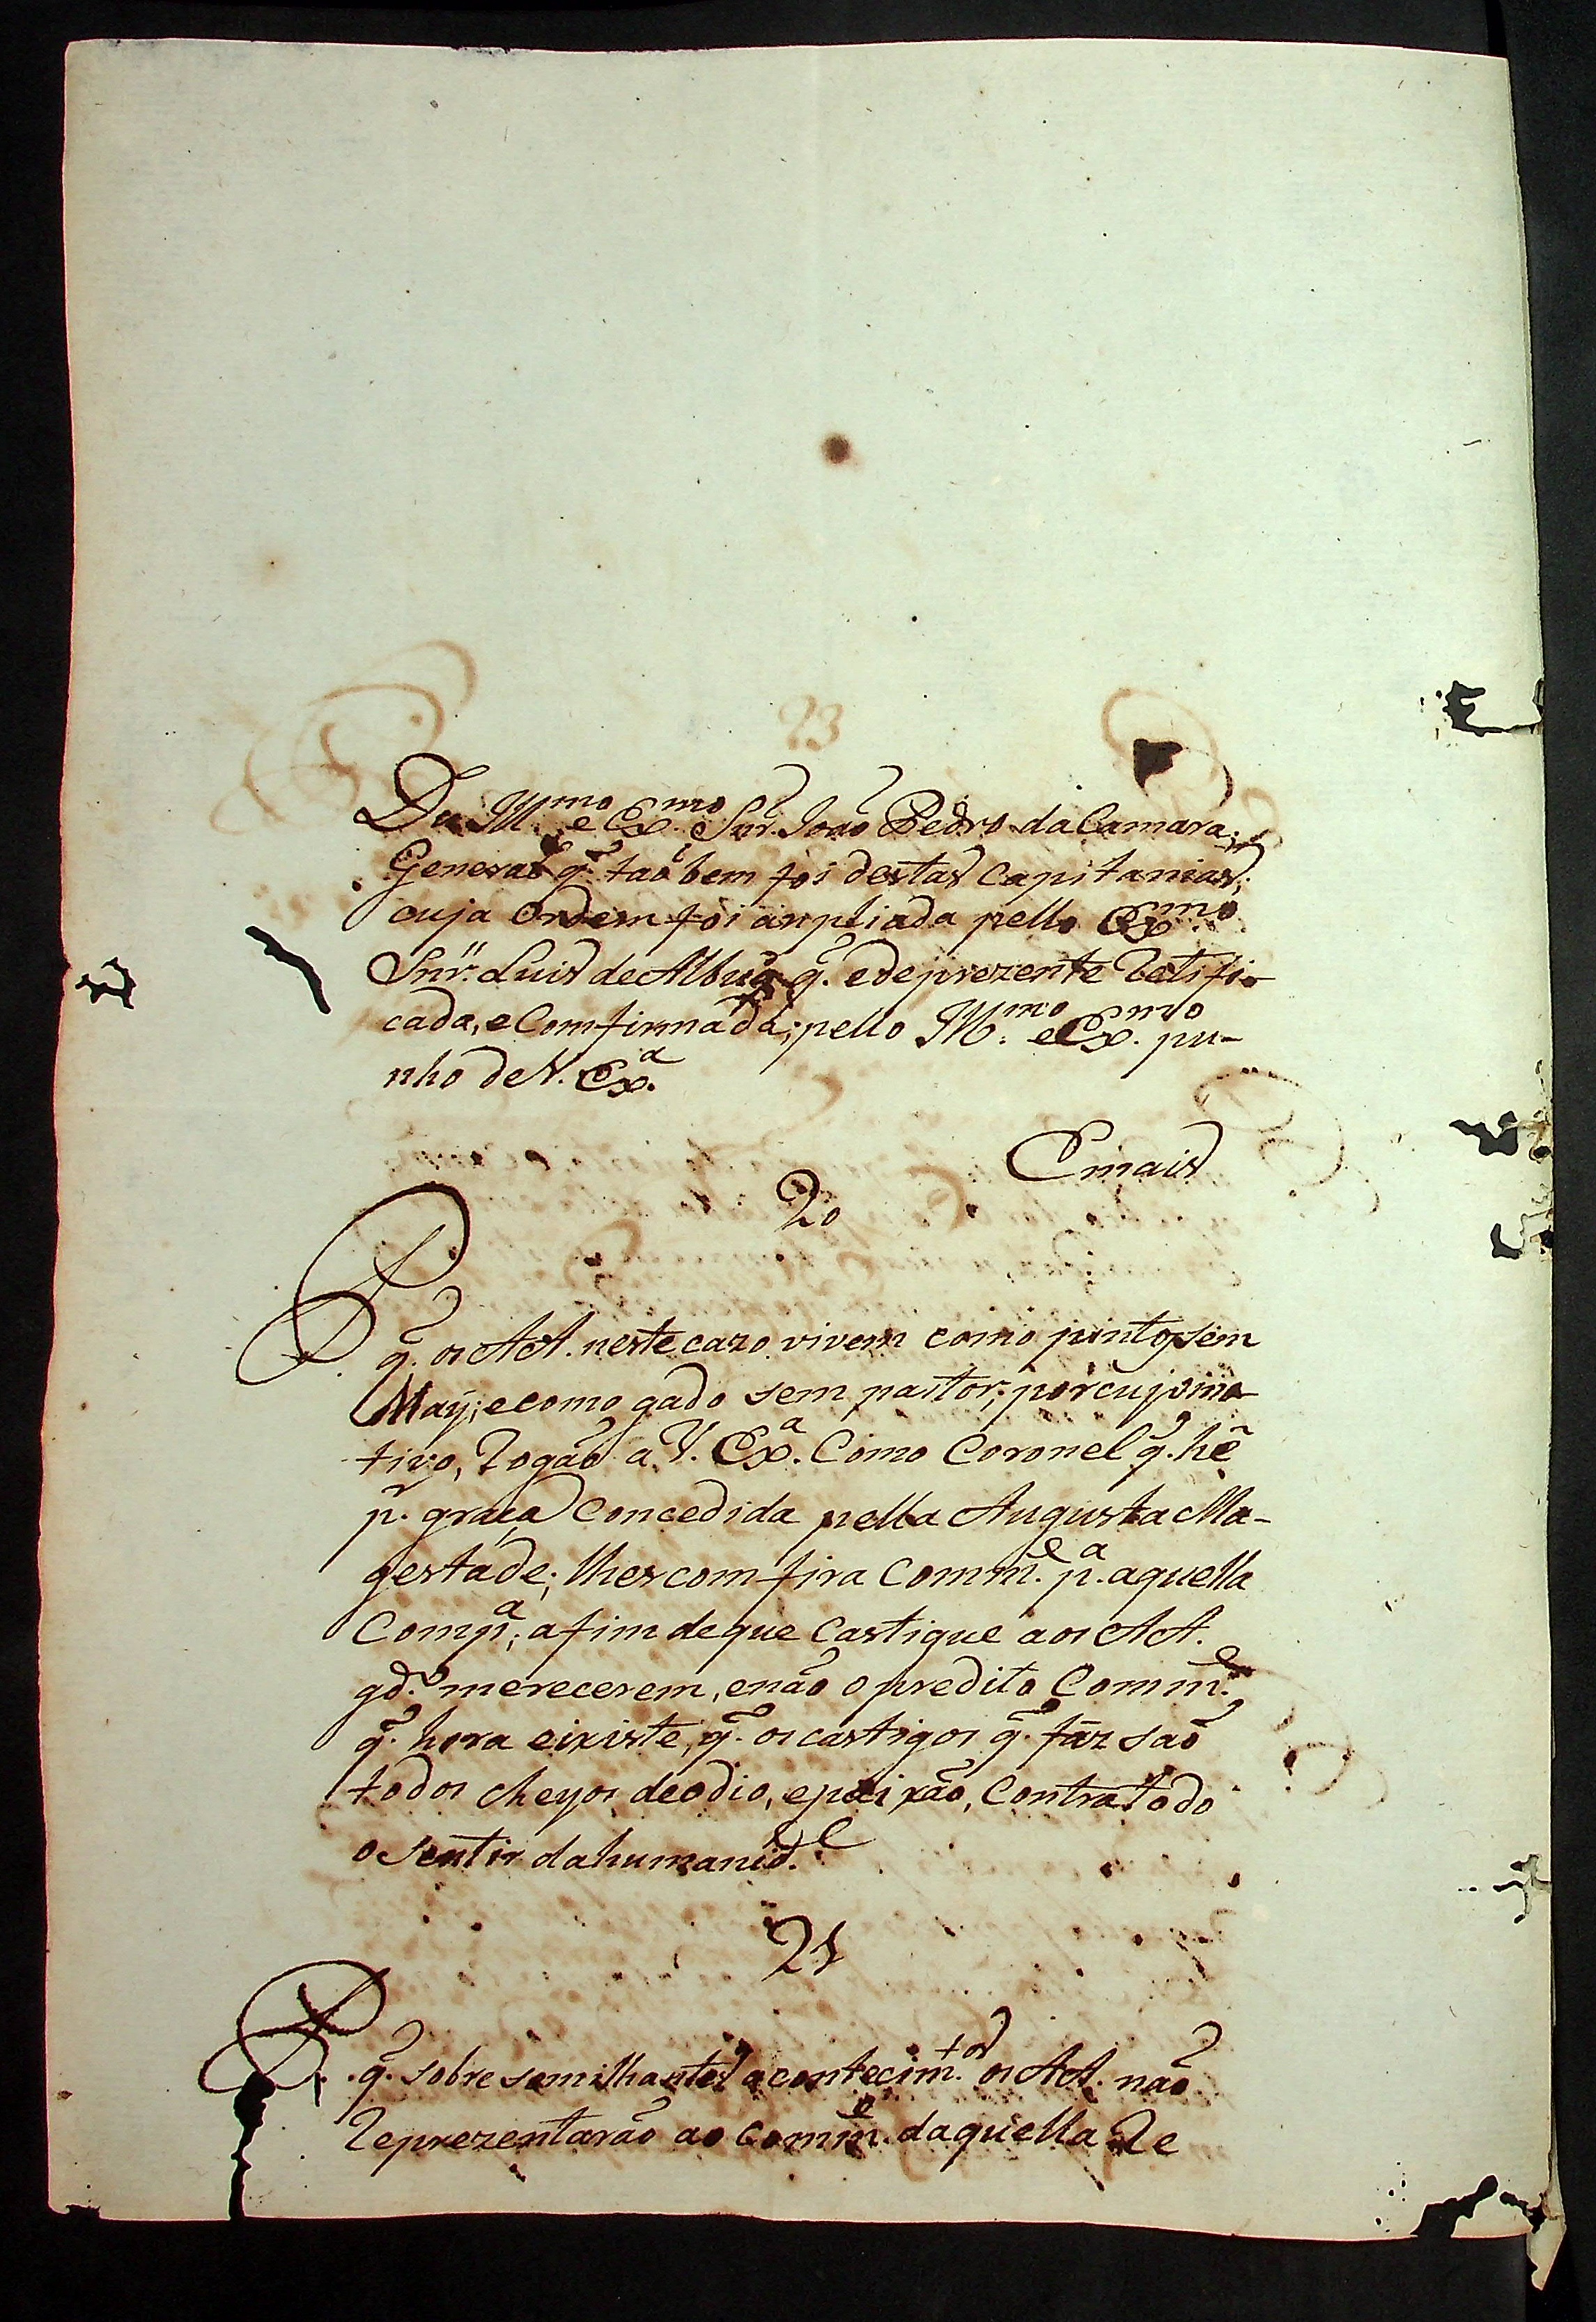 Do Illmo e Exmo Snr. João Pedro da Camara;
General q̃ taõ bem foi destas Capitanias;
cuja Ordem foi anpliada pello Exmo
Snr. Luis de Albuq̃ q̃. e de prezente Retifi-
cada, e Comfirmada; pello Illmo e Exmo pu-
nho de V. Exa
E mais
20
P. q̃. os AA. neste cazo vivem como pintos sem
May; e como gado sem pastor; por cujo mo-
tivo, Rogaõ a V. Exa. Como Coronel q̃. hé
p. graça Concedida pella Augusta Ma-
gestade; lhes comfira Comme. pa. aquella
Compa; a fim de que Castigue aos AA.
qdo. merecerem, e naõ o predito Comme.
q̃. hora eixiste, q̃. os castigos q̃. fáz saõ
todos cheyos de odio, e paixaõ, Contra todo
o Sentir da humanide.
21
P. q̃. sobre semilhantes acontecimtos. os AA. naõ
Reprezentaraõ ao Comme. daquella Re